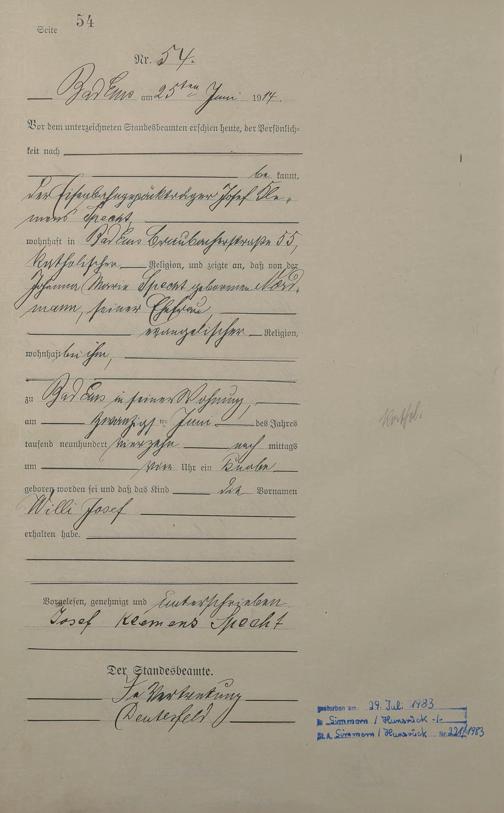 Seite 54
Nr. 54.
Bad Ems am 25ten Juni 1914.
Vor dem unterzeichneten Standesbeamten erschien heute, der Persönlich-
keit nach
be kannt,
der Eisenbahngepäckträger Josef Kle-
mens Specht,
wohnhaft in Bad Ems Braubacherstraße 55,
katholischer Religion, und zeigte an, daß von der
Johanna Marie Specht geborenen Nord-
mann, seiner Ehefrau,
evangelischer Religion,
wohnhaft bei ihm,
zu Bad Ems in seiner Wohnung,
am zwanzigsten Juni des Jahres
tausend neunhundert vierzehn nach mittags
um vier Uhr ein Knabe
geboren worden sei und daß das Kind die Vornamen
Willi Josef
erhalten habe.
Vorgelesen, genehmigt und unterschrieben
Josef Klemens Specht
Der Standesbeamte.
In Vertretung
gestorben am 29. Juli 1983
in Simmern / Hunsrück -/-
St. A. Simmern / Hunsrück Nr. 221/1983